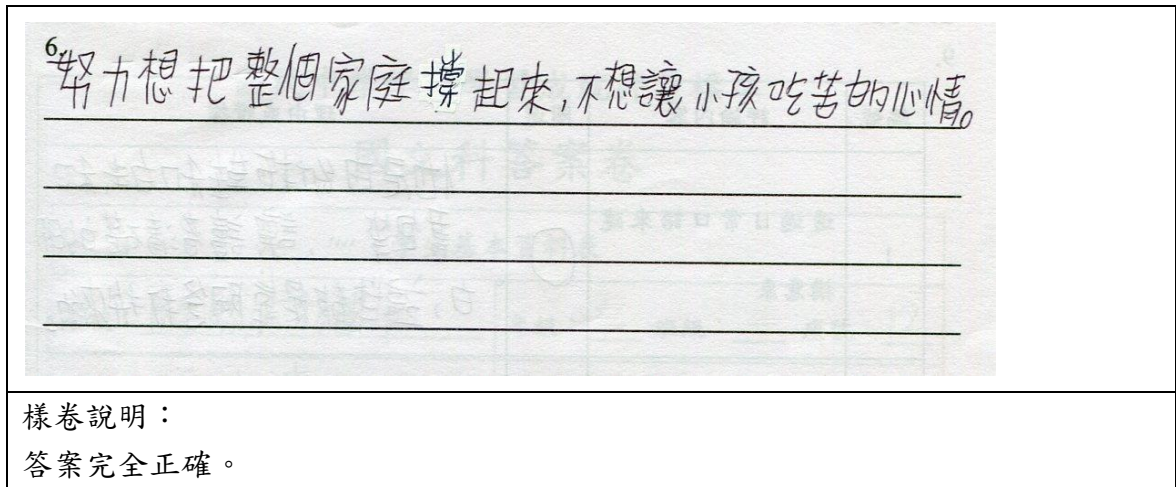 6.
努力想把整個家庭撐起來,不想讓小孩吃苦的心情。
樣卷說明：
答案完全正確。